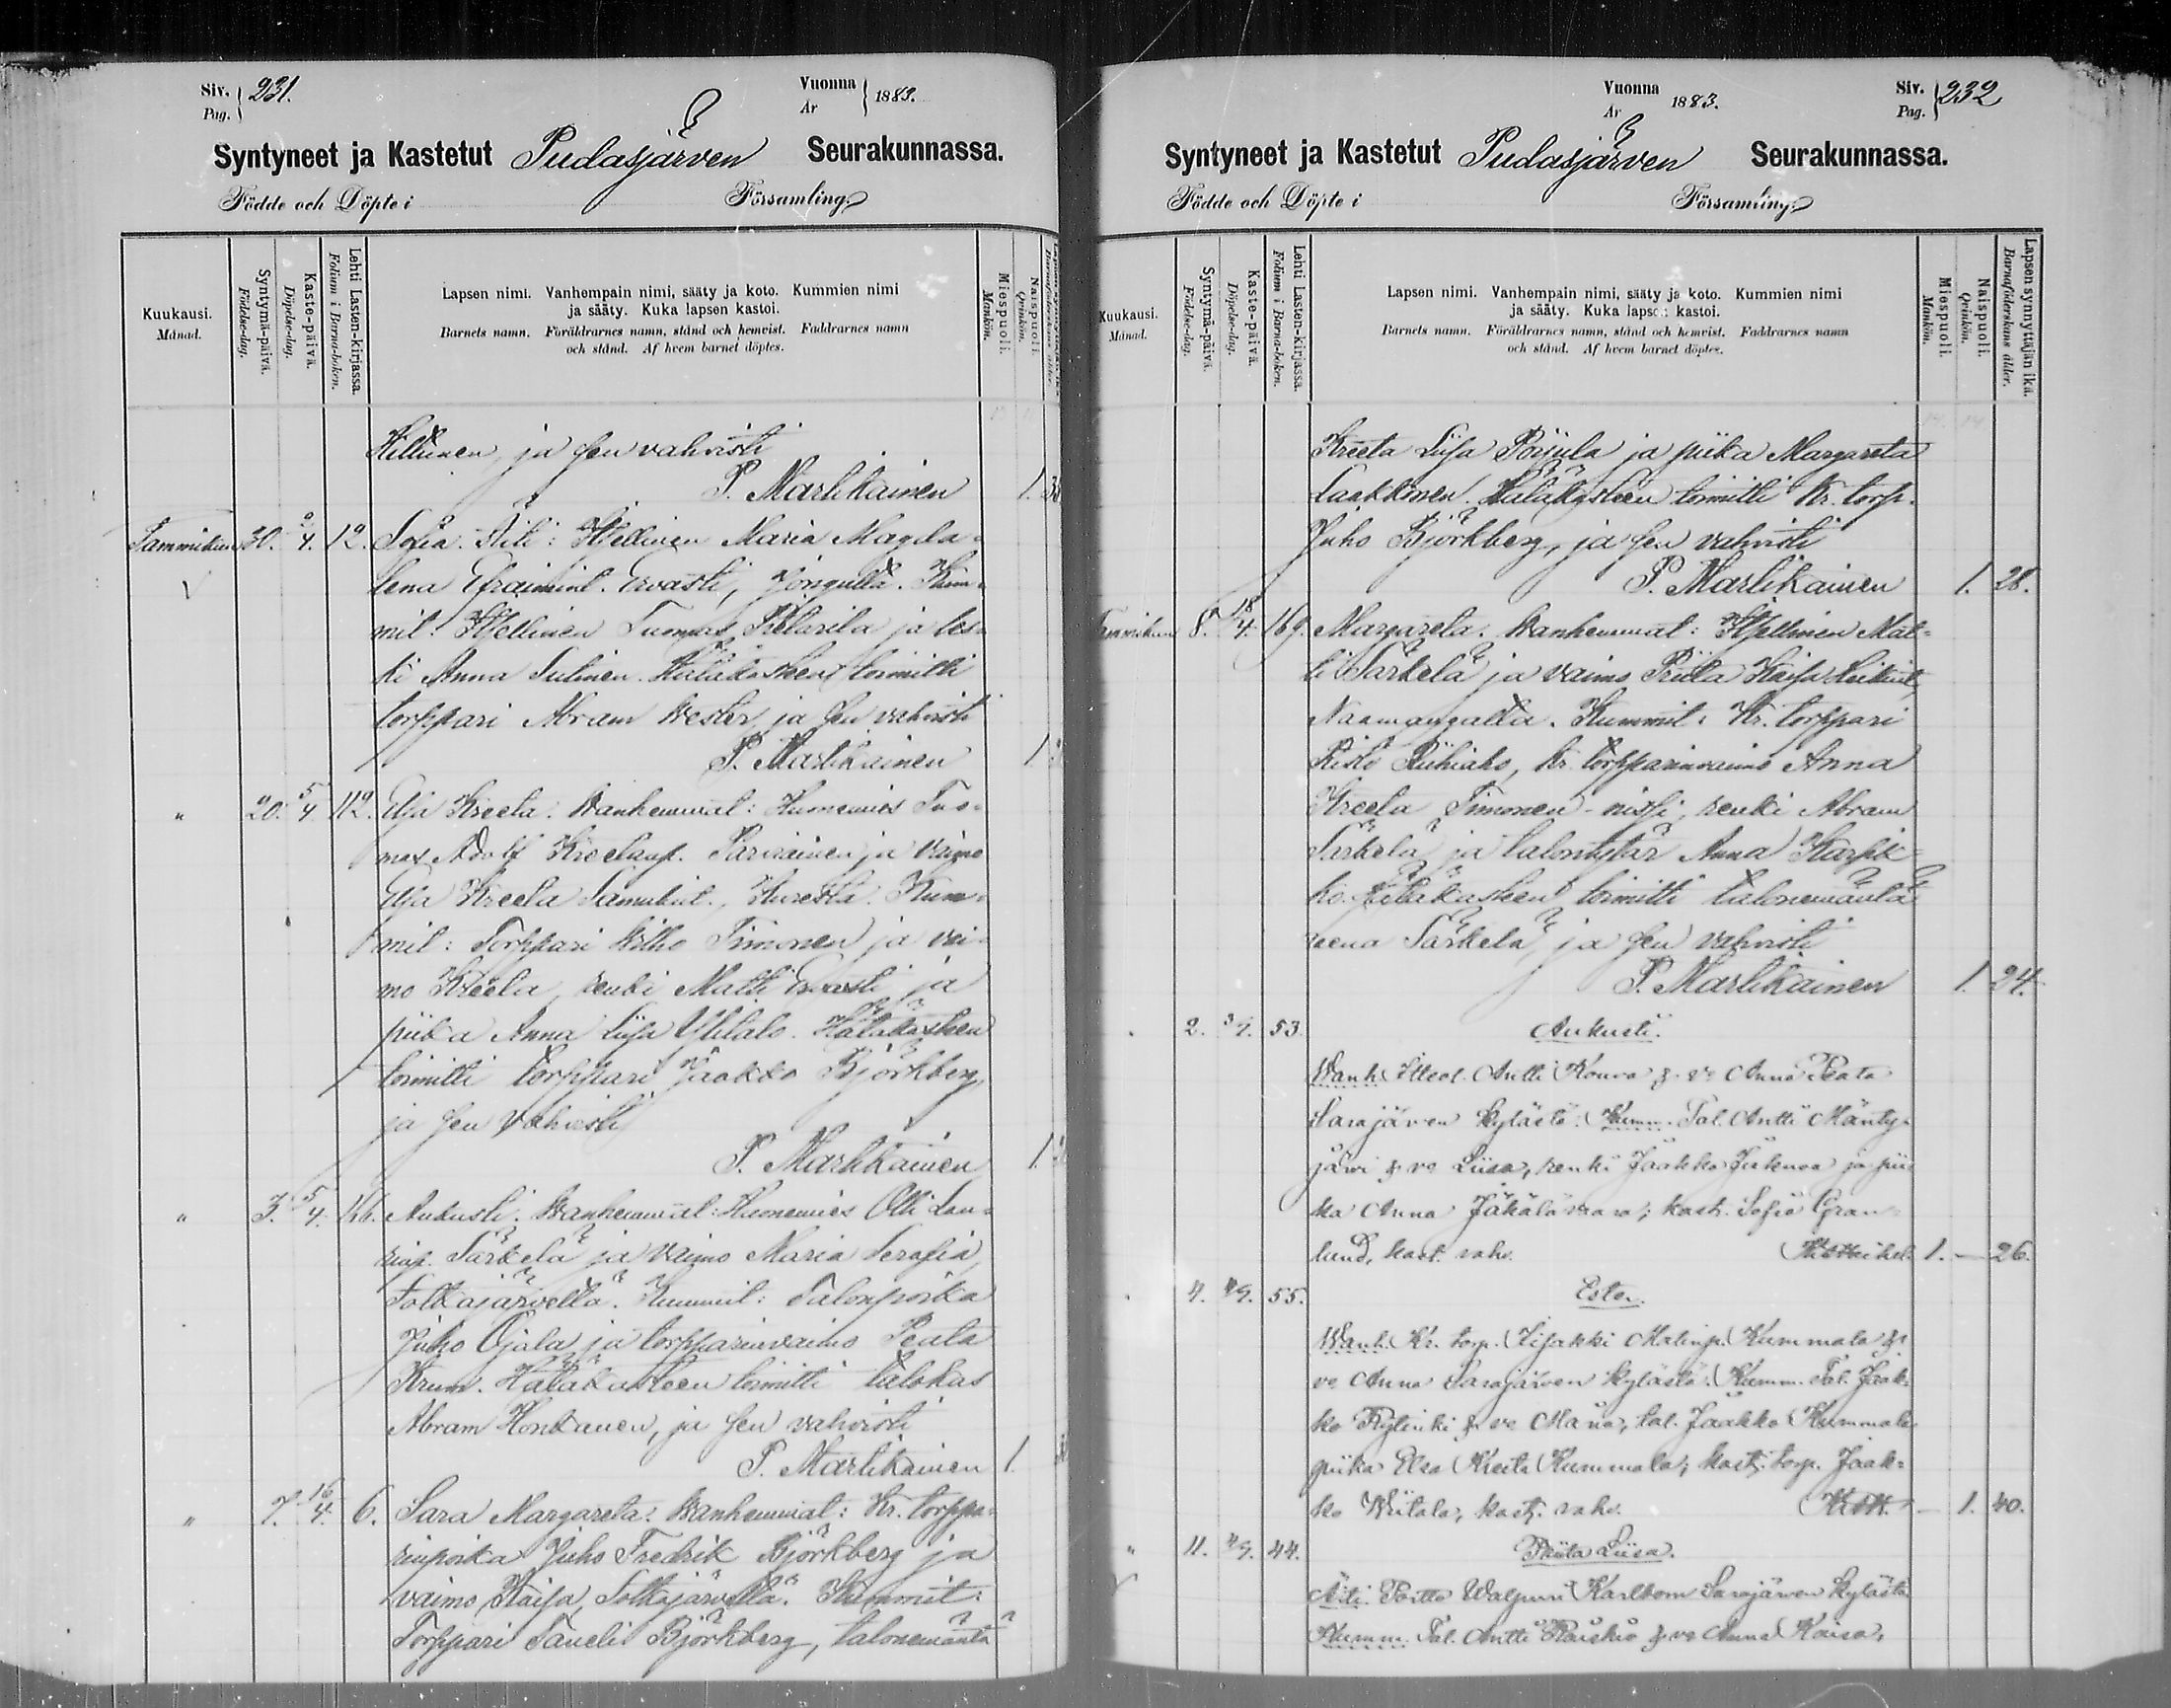 Siv. Pag. 231.
Vuonna År 1883.
Syntyneet ja Kastetut Pudasjärven Seurakunnassa.
Födde och Döpte i Församling
Kuukausi. Månad.
Syntymä-päivä. Födelse-dag.
Kaste-päivä. Döpelse-dag.
Lehti Lasten-kirjassa. Folium i Barna-boken.
Lapsen nimi. Vanhempain nimi, sääty ja koto. Kummien nimi
ja sääty. Kuka lapsen kastoi.
Barnets namn. Föräldrarnes namn, stånd och hemvist. Faddrarnes namn
och stånd. Af hvem barnet döptes.
Miespuoli. Mankön.
Naispuoli. Qvinkön.
ja sen vahvisti
P. Martikainen 1.
Tammikuu 30. 2/4. 12. Sofia. Äiti: Itsellinen Maria Magda-
lena Efraimint. Ervasti, Jongulta. Kum-
mit: Itsellinen Tuomas Pietarila ja les-
ki Anna Sulinen. Hätäkasteen toimitti
torppari Abram Wester, ja sen vahvisti
P. Martikainen 1
" 20. 5/4. 112. Elsa Kreeta. Wanhemmat: Huonemies Tuo-
mas Adolf Kreetanp. Parviainen ja vaimo
Elsa Kreeta Samulint., Kum-
mit: Torppari Timonen ja vai-
mo Kreeta, renki Matti Ervasti ja
piika Anna Liisa Ylitalo. Hätäkasteen
toimitti torppari Jaakko Björkberg,
ja sen vahvisti
P. Martikainen 1.
" 3. 5/4. 166. Aukusti. Wanhemmat: Huonemies Olli Lau-
rinp. Särkelä ja vaimo Maria Serafia,
Sotkajärveltä. Kummit: Talonpoika
Juho Ojala ja torpparinvaimo Peata
Krum. Hätäkasteen toimitti talokas
Abram Honkanen, ja sen vahvisti
P. Martikainen 1.
" 7. 16/4. 6. Sara Margareta. Wanhemmat: Kr. torppa-
rinpoika Juho Fredrik Björkberg ja
vaimo Kaisa, Sotkajärveltä. Kummit:
Torppari Taneli Björkberg, talonemäntä
Vuonna År 1883.
Siv. Pag. 232
Syntyneet ja Kastetut Pudasjärven Seurakunnassa.
Födde och Döpte i Församling
Kuukausi. Månad.
Syntymä-päivä. Födelse-dag.
Kaste-päivä. Döpelse-dag.
Lehti Lasten-kirjassa. Folium i Barna-boken.
Lapsen nimi. Vanhempain nimi, sääty ja koto. Kummien nimi
ja sääty. Kuka lapsen kastoi.
Barnets namn. Föräldrarnes namn, stånd och hemvist. Faddrarnes namn
och stånd. Af hvem barnet döptes.
Miespuoli. Mankön.
Naispuoli. Qvinkön.
Lapsen synnyttäjän ikä. Barnaföderskans ålder.
Kreeta Liisa Poijula ja piika Margareta
Laakkonen. Hätäkasteen toimitti Kr. torp.
Juho Björkberg, ja sen vahvisti
P. Martikainen 1. 28.
Tammikuu 8. 18/4. 169. Margareta. Wanhemmat: Itsellinen Mat-
ti Särkelä ja vaimo Priita Kaisa
Naamangalta. Kummit: Kr. torppari
Risto Riihiaho, kr. torpparinvaimo Anna
Kreeta Timonen, renki Abram
Särkelä ja talontytär Anna Karpik-
ko. Hätäkasteen toimitti talonemäntä
Leena Särkelä, ja sen vahvisti
P. Martikainen 1. 24.
2. 53. Aukusti.
Wanh. Itsel. Antti Kouva & vo Anna Peata
Sarajärven kylästä. Kumm. Tal. Antti Mänty-
järvi & vo Liisa, renki Jaakko ja pii-
ka Anna Jäkälävaara; kast. Sofia Gran-
lund, kast. vahv. 1. — 26.
4. 55. Ester.
Wanh. Kr. torp. Iisakki Matinp. Kummala &
vo Anna Sarajärven kylästä. Kumm. Tal. Jaak-
ko Rytinki & vo Maria, tal. Jaakko Kummala
piika Elsa Kreeta Kummala; kast. torp. Jaak-
ko Kiitala; kast. vahv. — 1. 40.
" 11. 44. Priita Liisa.
Äiti. Walpuri Karlbom Sarajärven kylästä
Kumm. Tal. Antti Raiskio & vo Anna Kaisa,